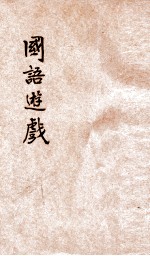 國語遊戲